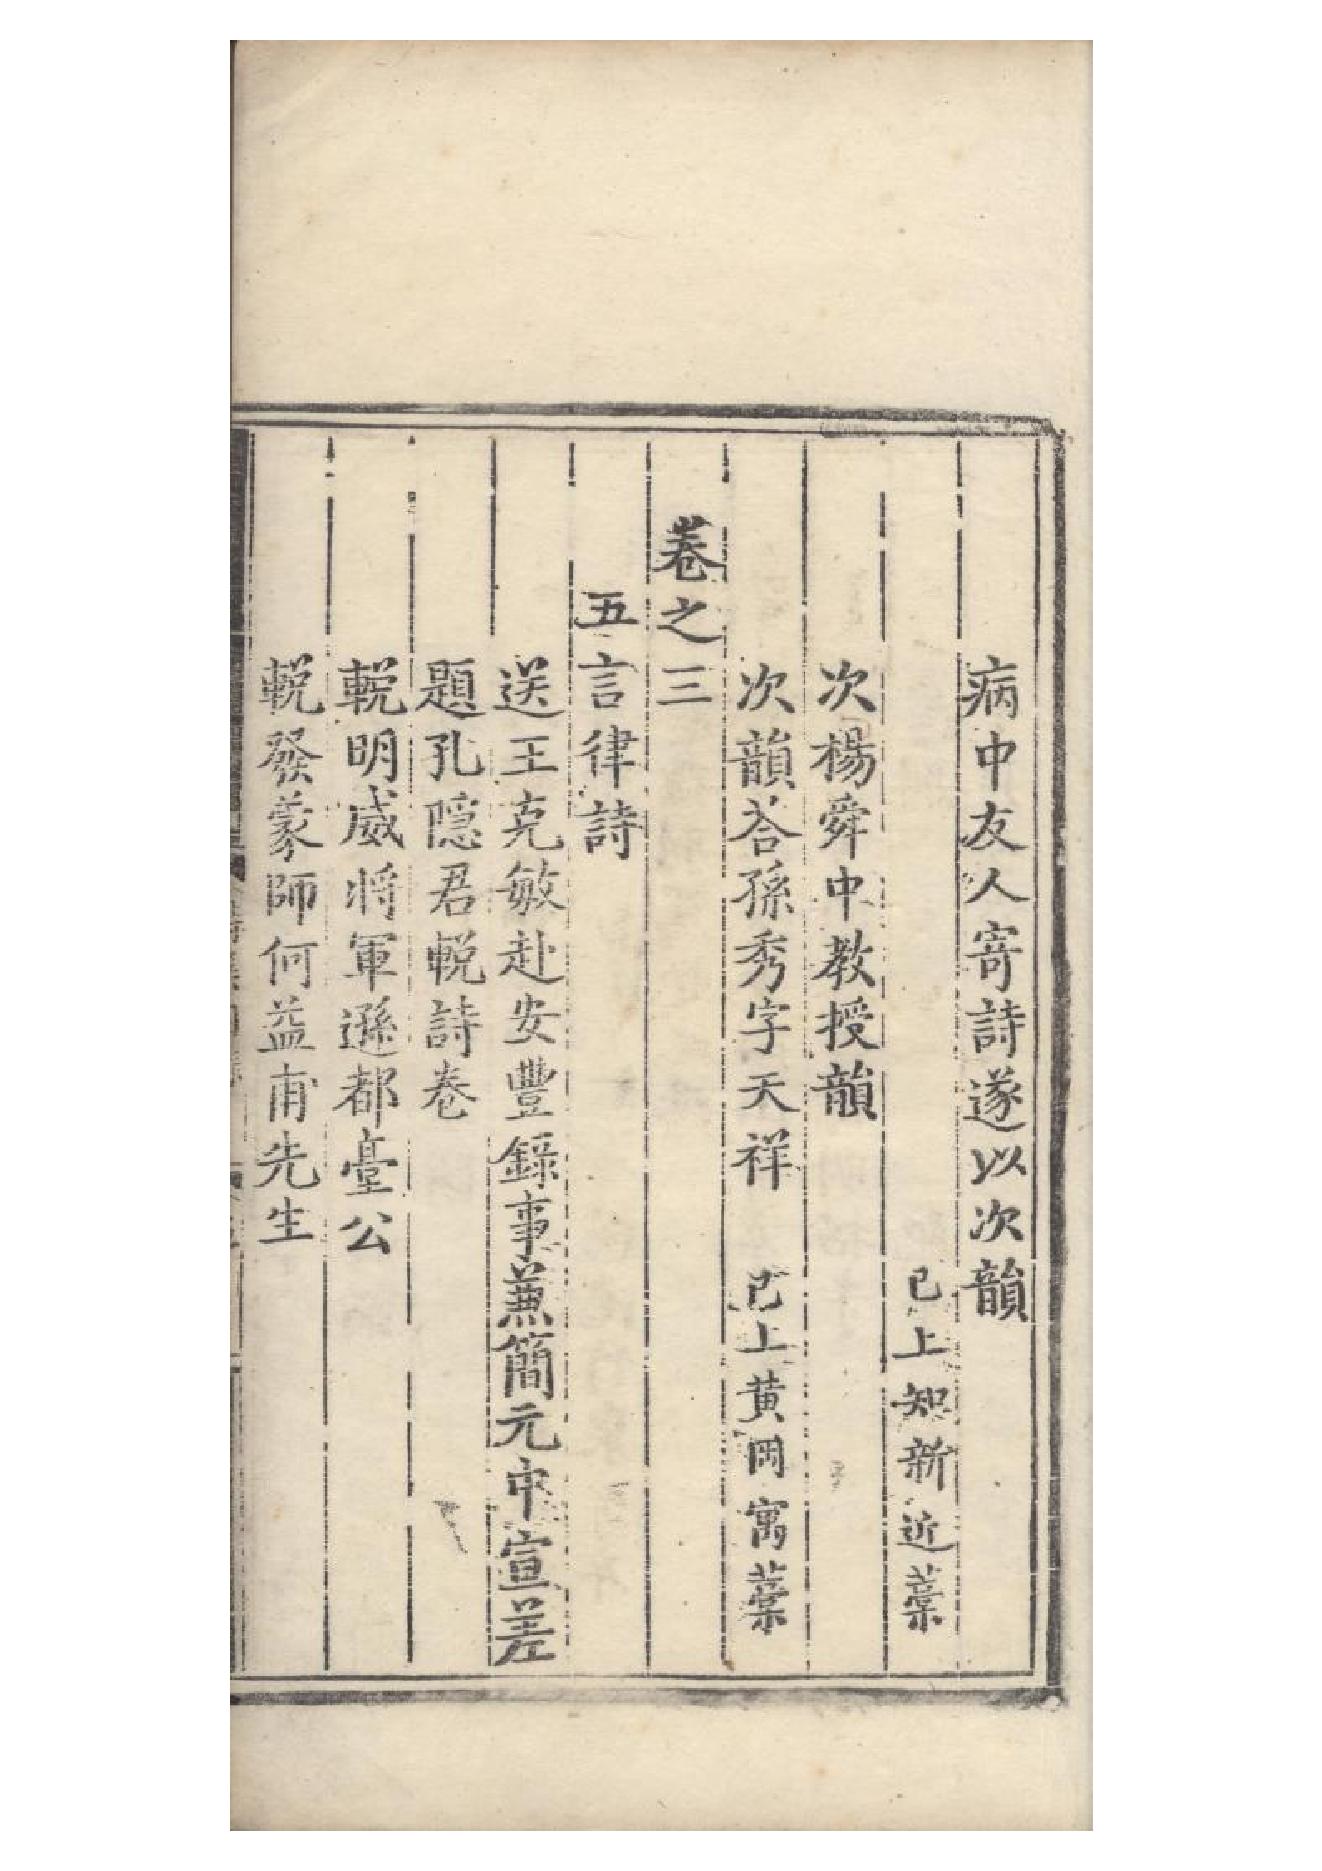 病中友人寄詩遂以次韻
已上知新近藁
次楊舜中教授韻
次韻荅孫秀字天祥　已上黄岡寓藁
卷之三
五言律詩
送王克敏赴安豐錄事蒹簡元中宣差
題孔隱君輓詩卷
輓明威將軍遜都臺公
輓發蒙師何益甫先生